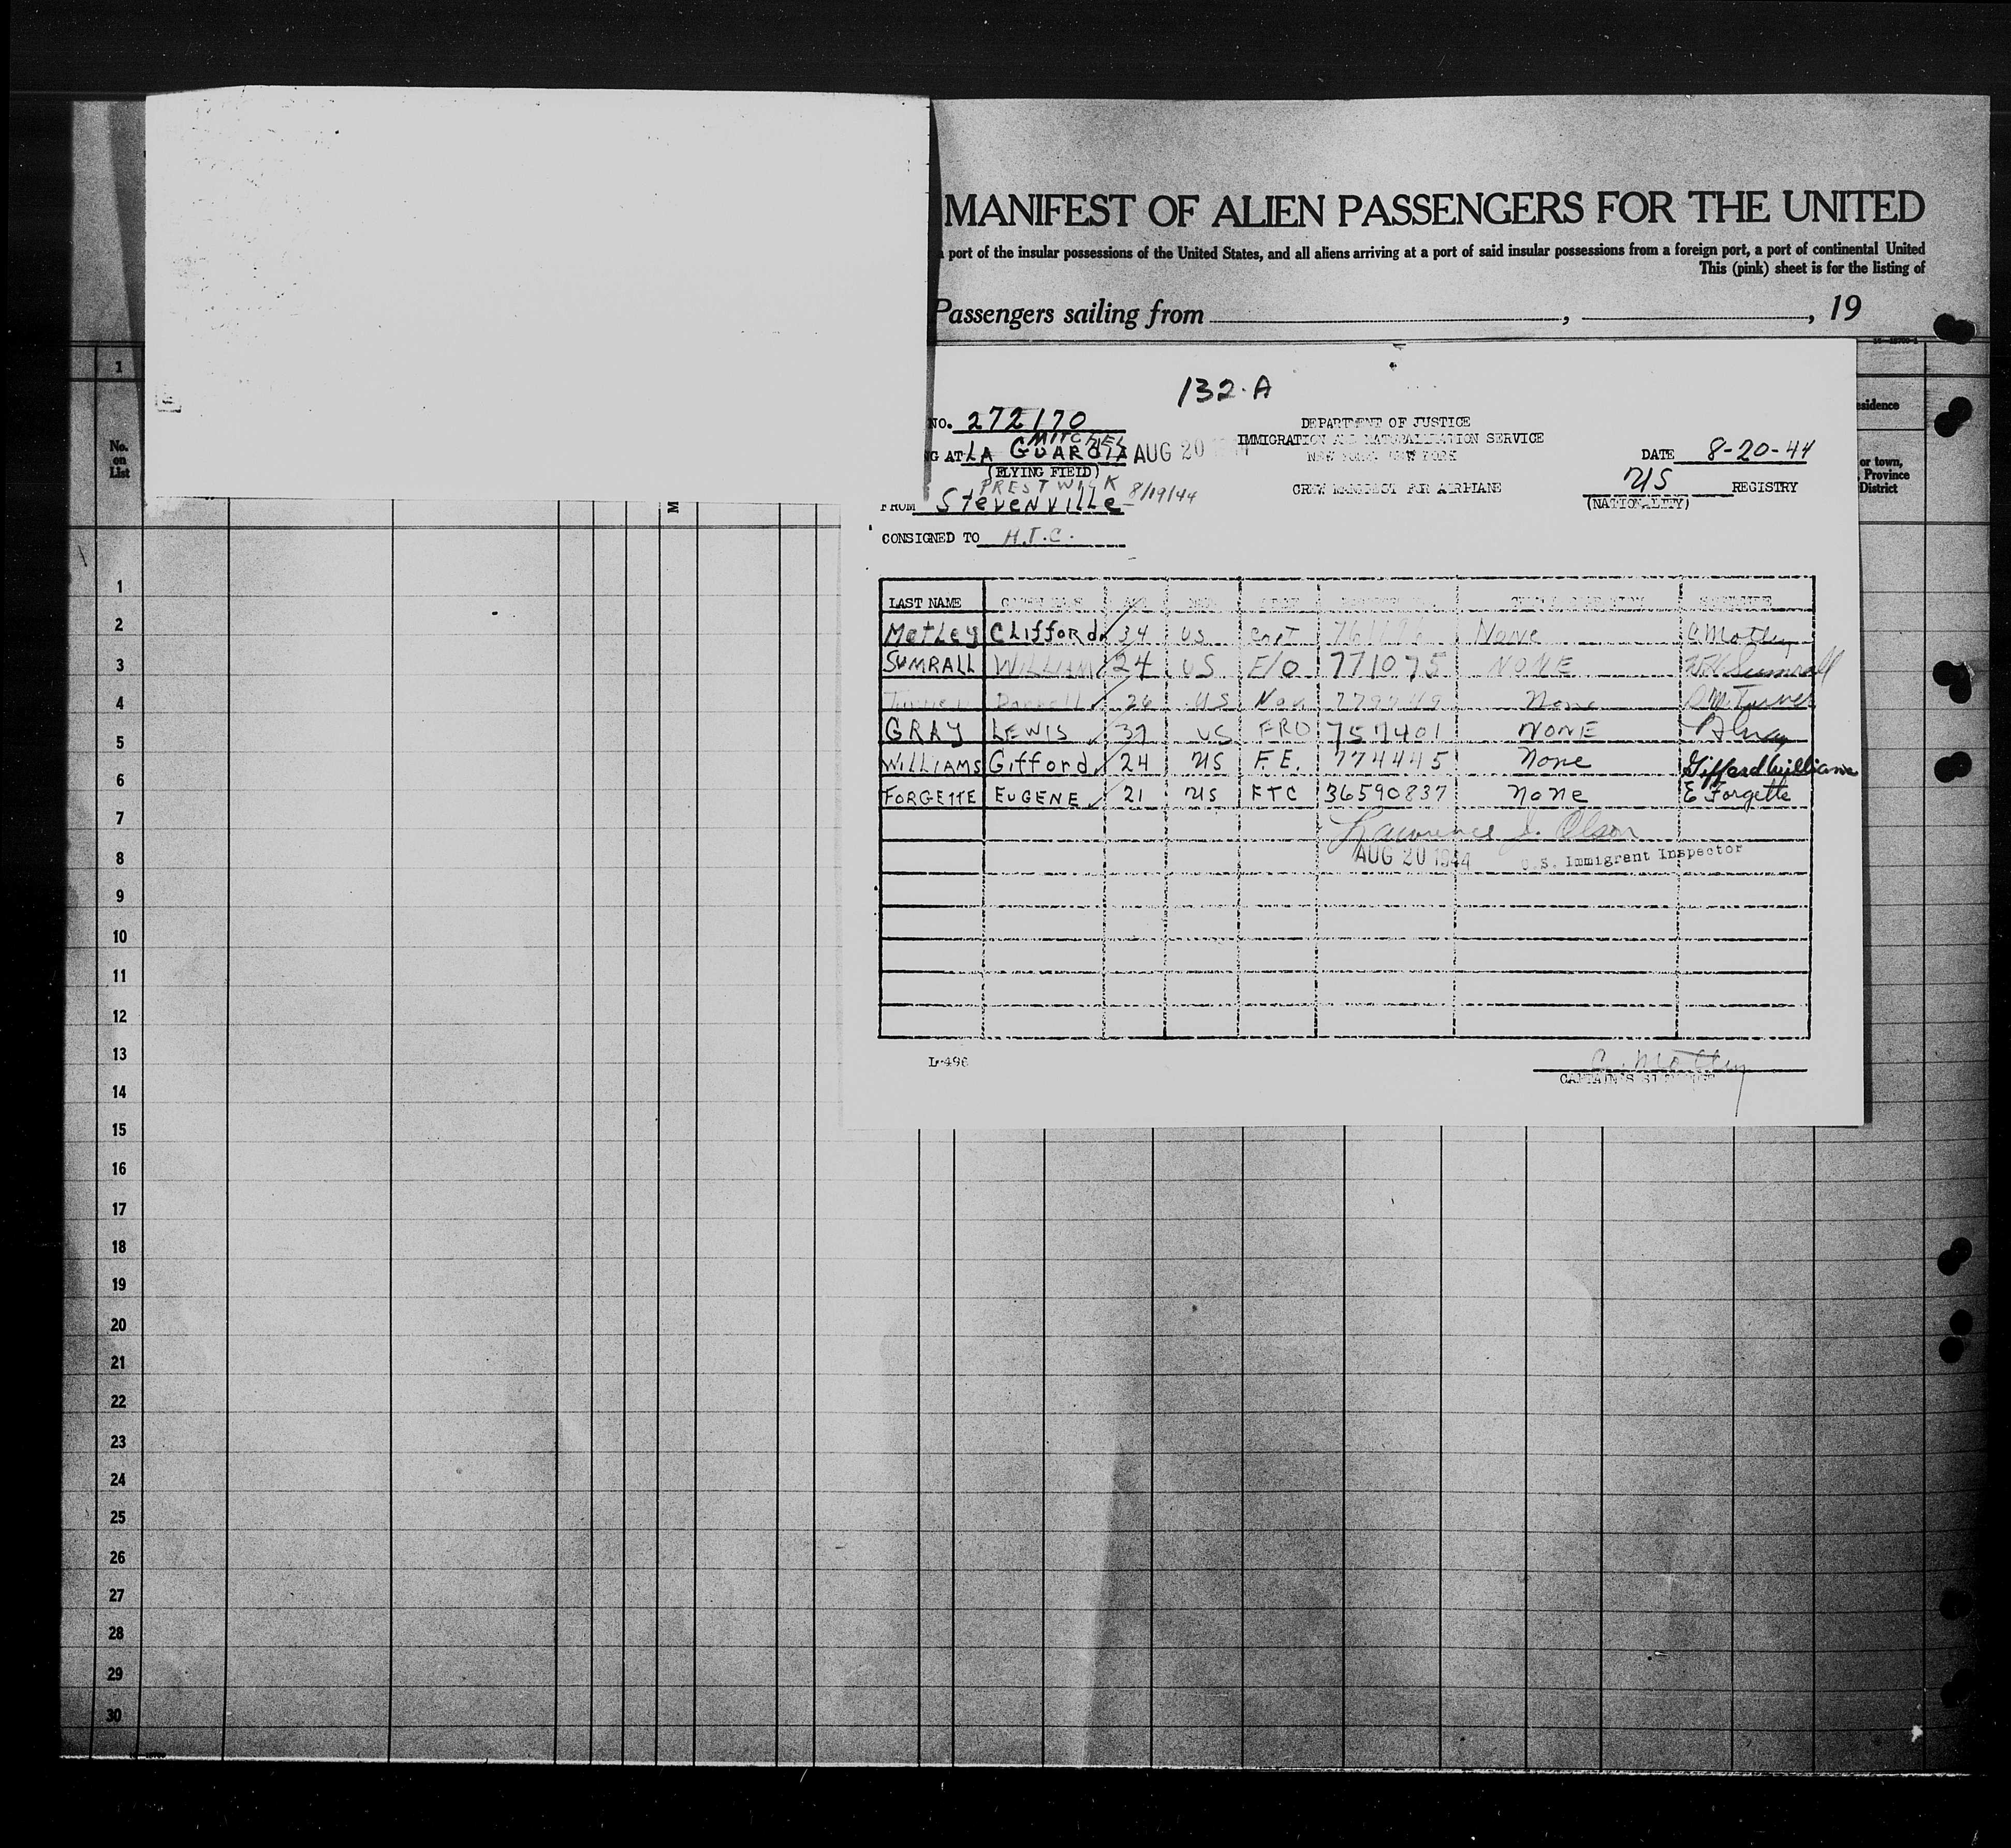 MANIFEST OF ALIEN PASSENGERS FOR THE UNITED
port of the insular possessions of the United States, and all aliens arriving at a port of said insular possessions from a foreign port, a port of continental United
This (pink) sheet is for the listing of
Passengers sailing from , , 19
132-A
NO. 272170
DEPARTMENT OF JUSTICE
IMMIGRATION AND NATURALIZATION SERVICE
NEW YORK, NEW YORK
MITCHEL
G AT LA GUARDIA AUG 20
(FLYING FIELD)
DATE 8-20-44
CREW MANIFEST FOR AIRPLANE
US REGISTRY
(NATIONALITY)
PRESTWICK 8/19/44
FROM Stevenville
CONSIGNED TO
LAST NAME
Motley Clifford 34 US None C Motley
SUMRALL WILLIAM 24 US F/O 771075 NONE Sumrall
26 US Nav None Turner
GRAY LEWIS 37 US FRO 757401 NONE Gray
WILLIAMS Gifford 24 US F.E. 774445 None Gifford Williams
FORGETTE EUGENE 21 US FTC 36590837 none E Forgette
Lawrence S. Olson
AUG 20 1944 U.S. Immigrant Inspector
L-496
C. Motley
CAPTAIN'S SIGNATURE
esidence
or town,
Province
District
1
No.
on
List
M
1
2
3
4
5
6
7
8
9
10
11
12
13
14
15
16
17
18
19
20
21
22
23
24
25
26
27
28
29
30